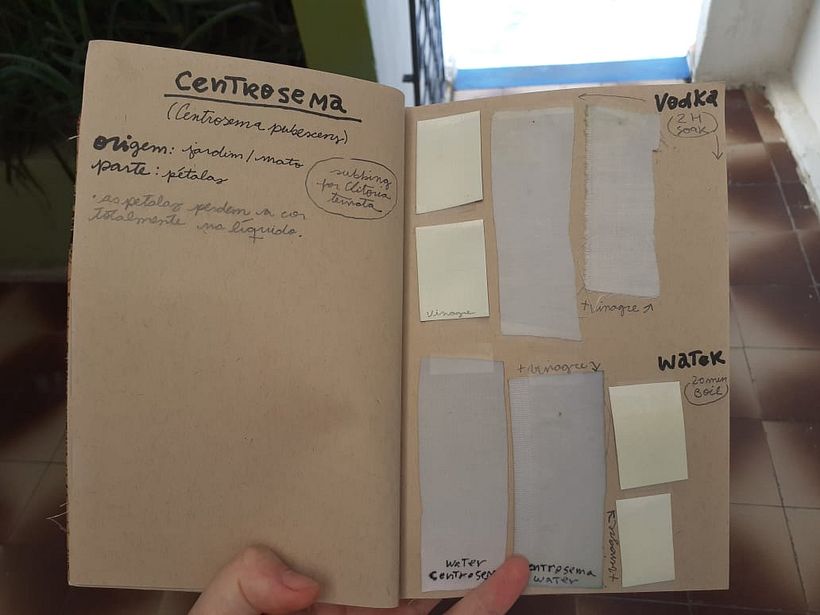 Centrosema
(Centrosema pubescens)
origem: jardim/mato
parte: pétalas
subbing
for Clitoria
ternata
• as petalas perdem a cor
totalmente no líquido.
Vodka
2H
soak
vinagre
+ vinagre
Water
20 min
Boil
+ vinagre
+ vinagre
Water
Centrosem
entrosema
water